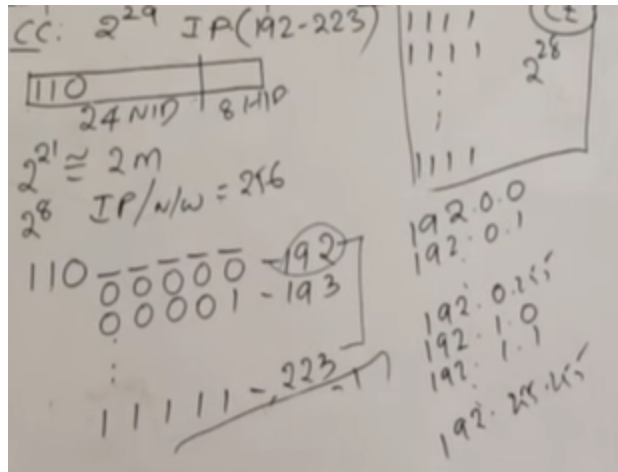 CC: 2^29 IP(192-223)
110
24 NID 8 HID
2^21 ≅ 2m
2^8 IP/N/W = 256
110 _ _ _ _ _
0 0 0 0 0 - 192
0 0 0 0 1 - 193
:
1 1 1 1 1 - 223
CE
1111
1111
2^28
:
:
1111
192.0.0
192.0.1
:
192.0.255
192.1.0
192.1.1
:
192.255.255